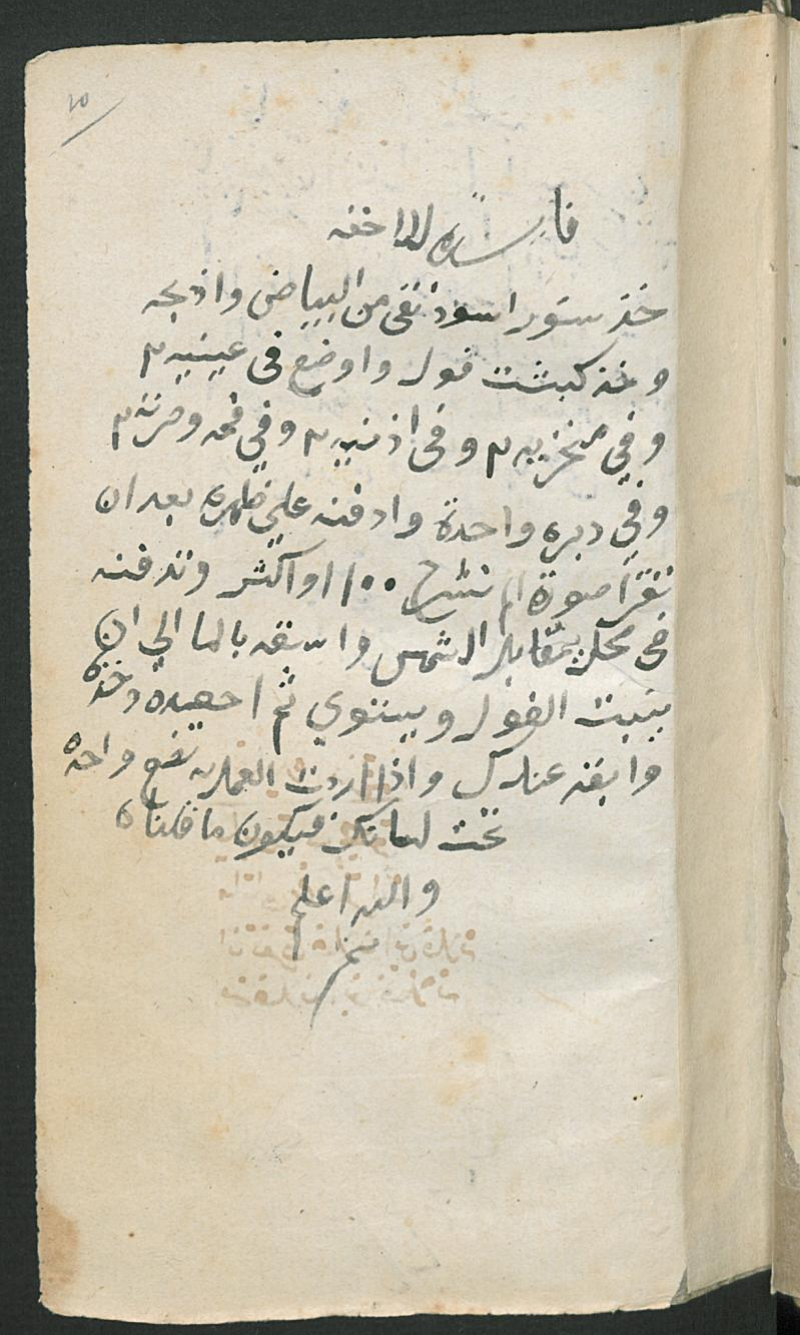 ٢٥
فايده للاخفه
خذ سنور اسود نقى من البياض واذبحه
وخذ كبشت فول واوضع فى عينيه ٢
وفي منخريه ٢ وفى اذنيه ٢ وفي فمه وصرته ٢
وفي دبره واحدة وادفنه علي ظهره بعد ان
تقرأ صورة الم نشرح ١٠٠ او اكثر وتدفنه
فى محل بمقابل الشمس واسقه بالما الي ان
ينبت الفول ويستوي ثم احصده وخذه
وابقه عندك واذا اردت العمل به تضع واحده
تحت لسانك فيكون ما قلناه
والله اعلم